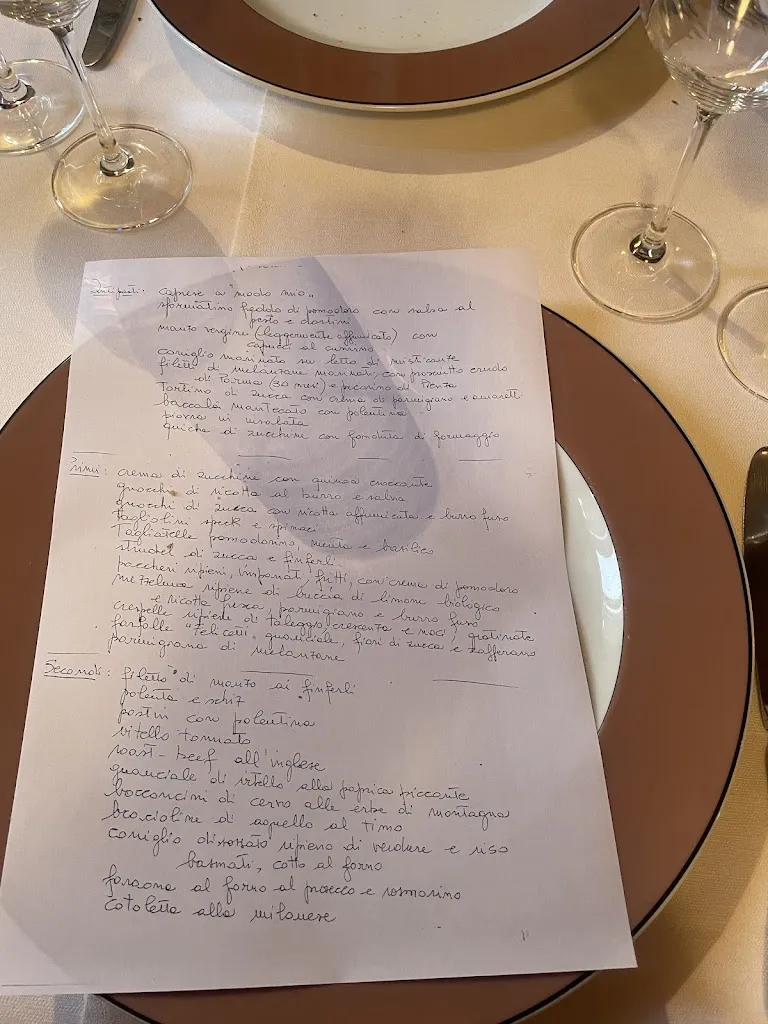 Antipasti: caprese a "modo mio"
sformatino freddo di pomodoro con salsa al
pesto e datterini
manzo vergine (leggermente affumicato) con
capucci al cumino
coniglio marinato su letto di misticanza
filetti di melanzane marinati, con prosciutto crudo
di Parma (30 mesi) e pecorino di Pienza
tortino di zucca con crema di parmigiano e amaretti
baccalà mantecato con polentina
piovra in insalata
quiche di zucchine con fonduta di formaggio
Primi: crema di zucchine con quinoa croccante
gnocchi di ricotta al burro e salvia
gnocchi di zucca con ricotta affumicata e burro fuso
tagliolini speck e spinaci
Tagliatelle pomodorino, menta e basilico
strudel di zucca e finferli
paccheri ripieni, impanati, fritti, con crema di pomodoro
mezzelune ripiene di buccia di limone biologico
e ricotta fresca, parmigiano e burro fuso
crespelle ripiene di taleggio crescenza e noci, gratinate
farfalle "Felicetti" guanciale, fiori di zucca e zafferano
parmigiana di melanzane
Secondi: filetto di manzo ai finferli
polenta e schiz
pastin con polentina
vitello tonnato
roast-beef all'inglese
guanciale di vitello alla paprica piccante
bocconcini di cervo alle erbe di montagna
braciolina di agnello al timo
coniglio disossato ripieno di verdure e riso
basmati, cotto al forno
faraona al forno al prosecco e rosmarino
cotoletta alla milanese